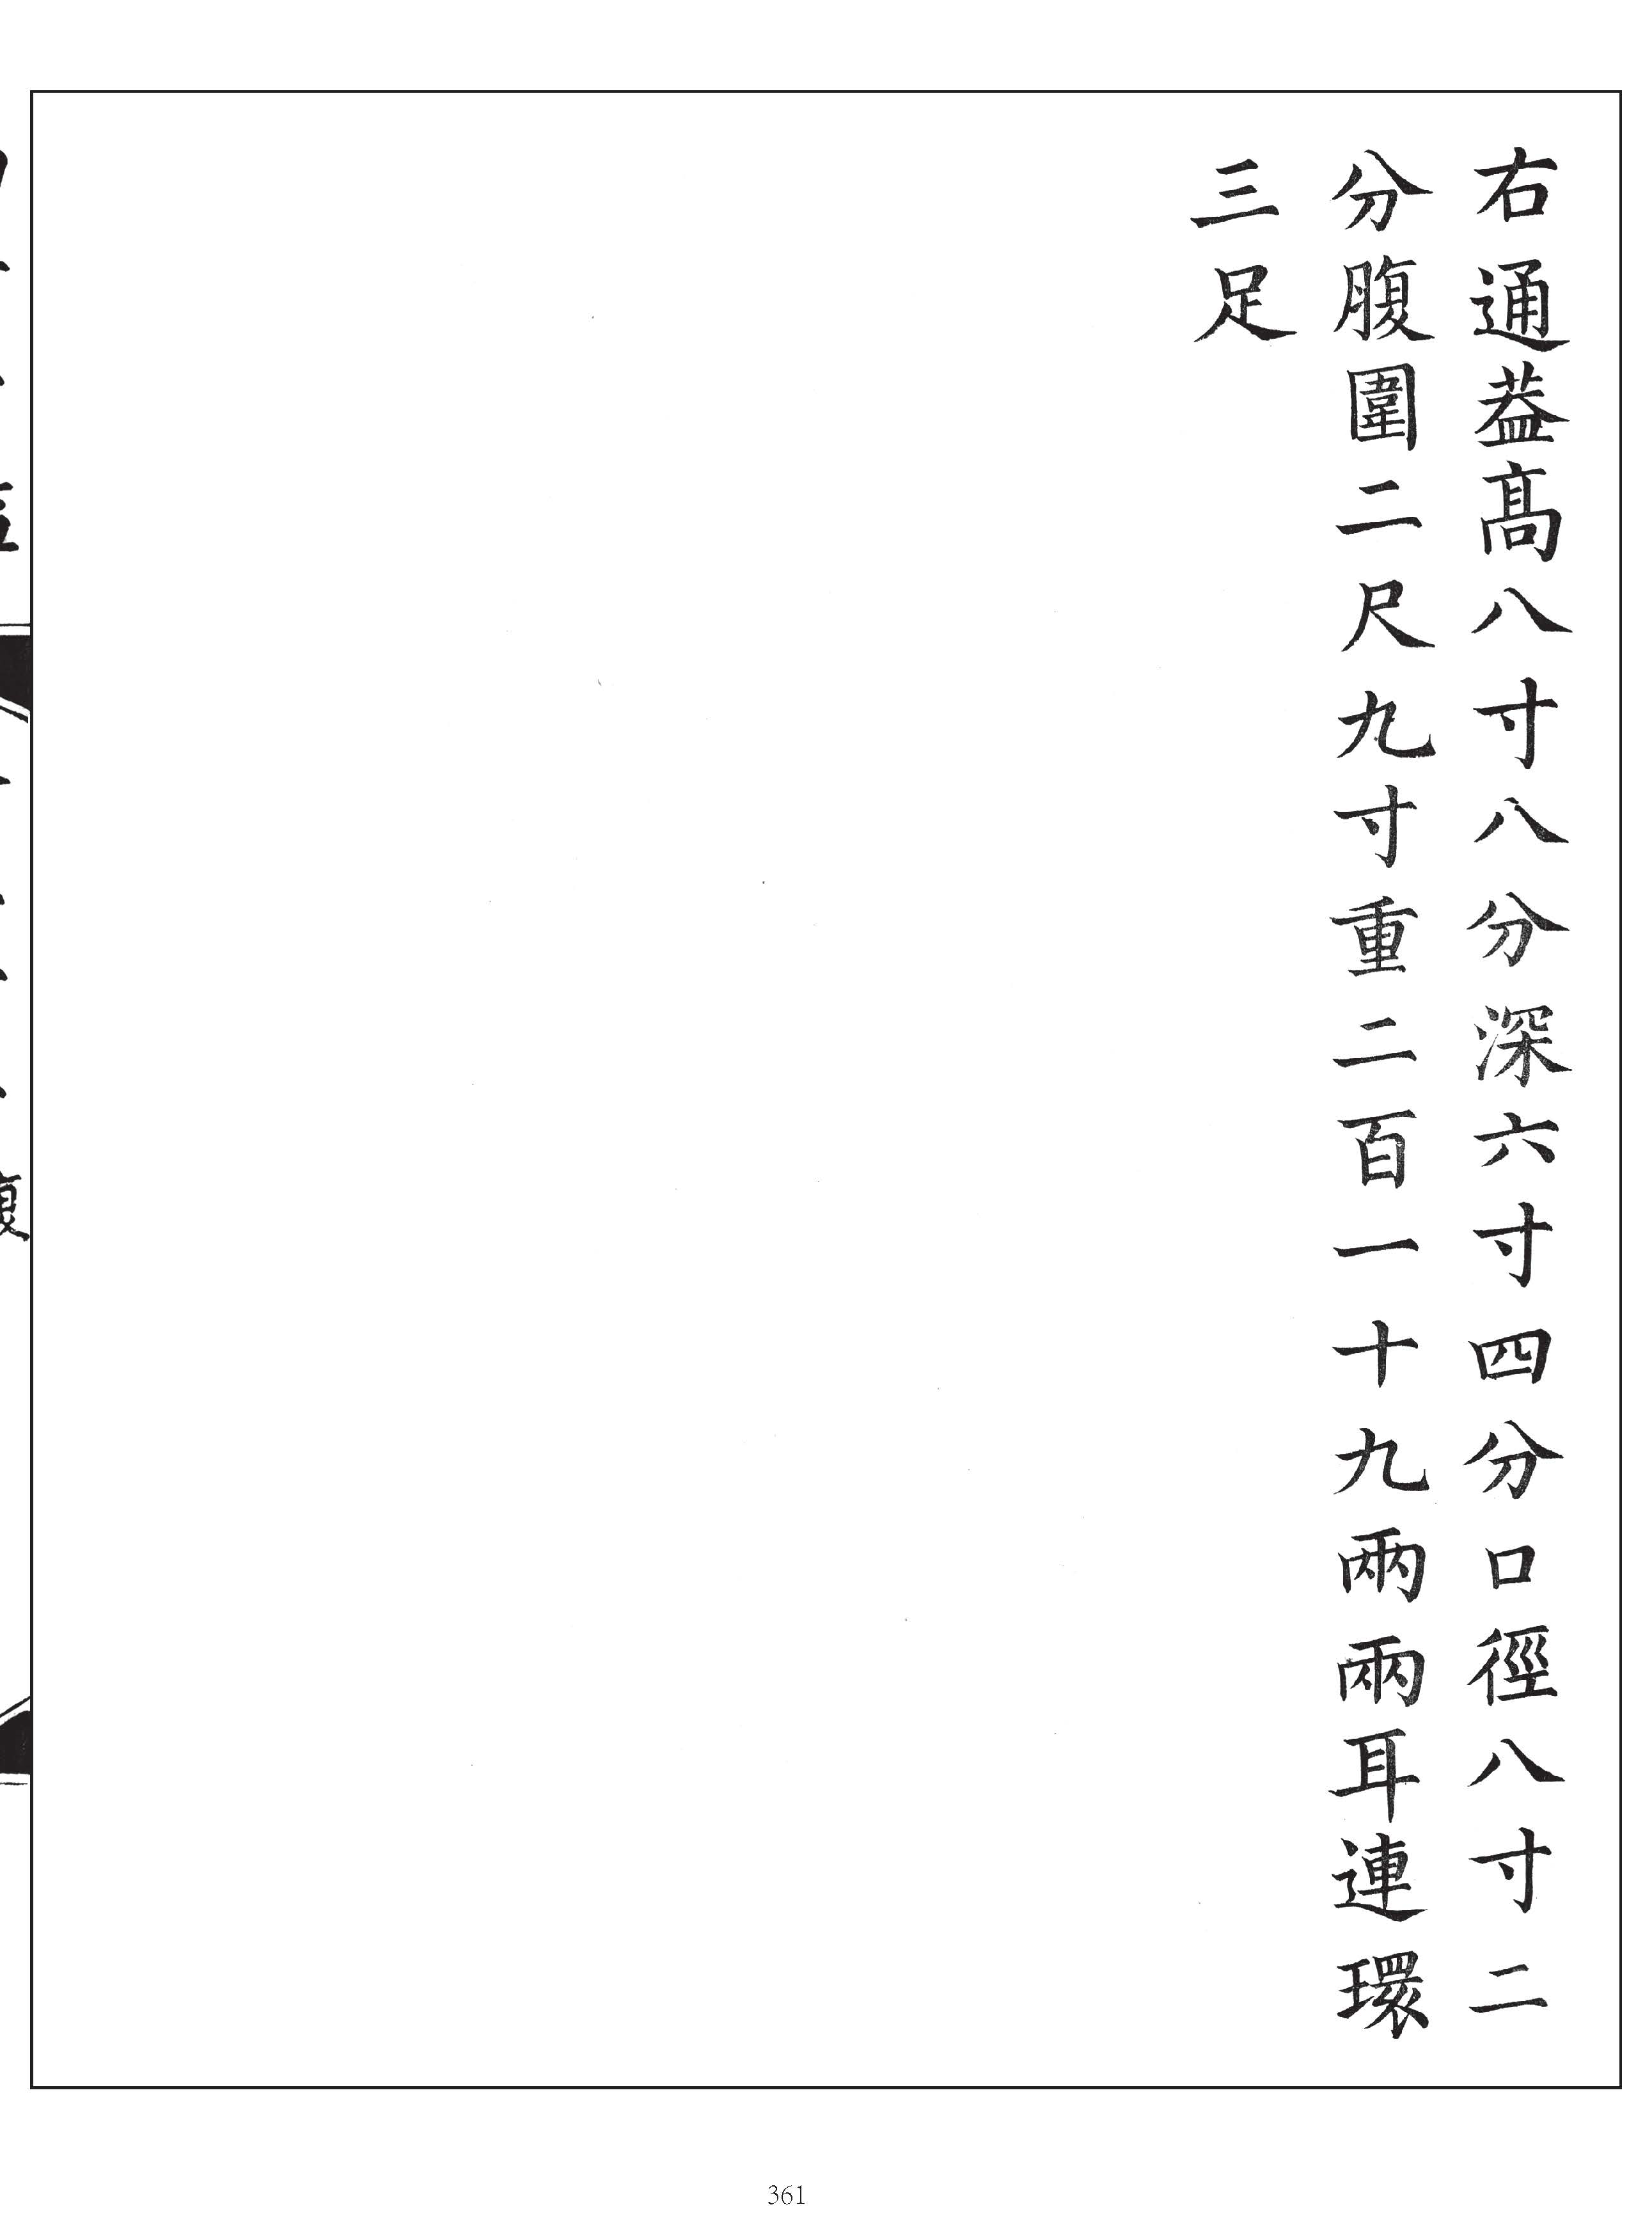 右通葢髙八寸八分深六寸四分口徑八寸二
分腹圍二尺九寸重二百一十九兩兩耳連環
三足
361